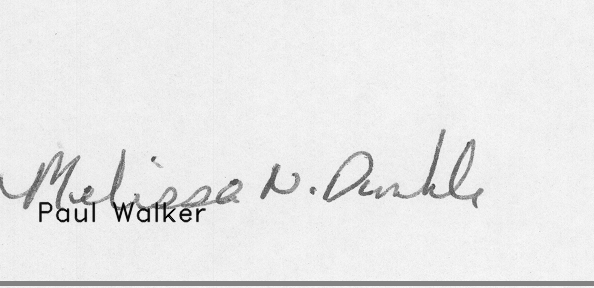 Melissa N. Dunkle
Paul Walker